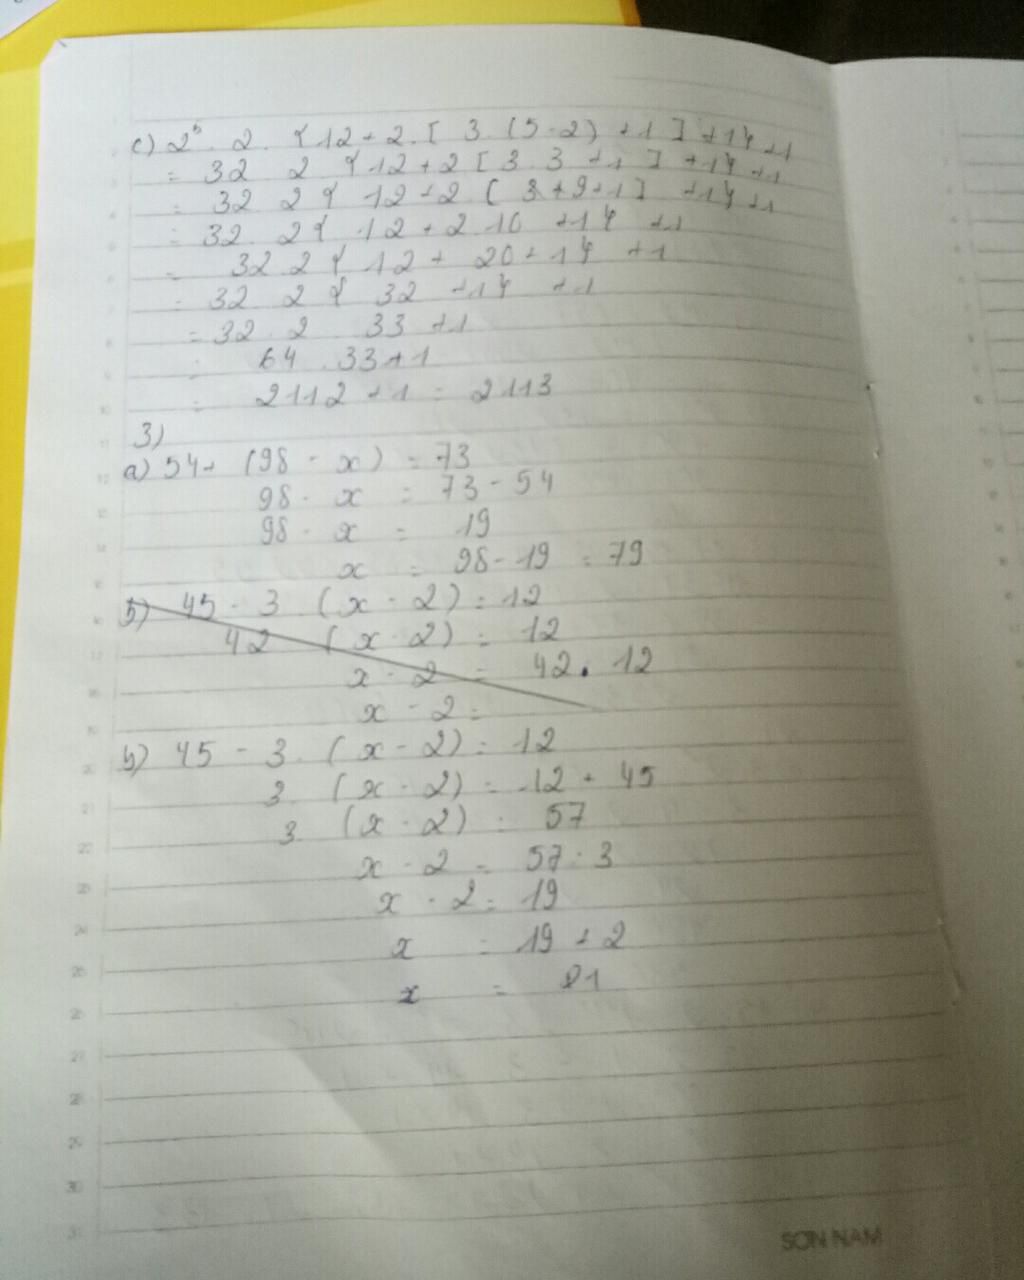 c) 2⁵. 2. {12+2.[ 3.(5-2) +1 ] +1} +1
= 32 2 {12+2 [3.3 +1 ] +1} +1
= 32 2 { 12+2. [ 9+1] +1} +1
= 32. 2{ 12+2 10 +1} +1
= 32.2 { 12+ 20+1} +1
= 32 2 { 32 +1} +1
= 32 2 33 +1
= 64 .33+1
= 2112 +1 = 2113
3)
a) 54+ (98 - x) = 73
98 - x = 73 - 54
98 - x = 19
x = 98-19 = 79
b) 45 - 3 . (x - 2) = 12
42 (x - 2) = 12
x - 2 = 42 . 12
x - 2 =
b) 45 - 3. (x - 2) = 12
3. (x - 2) = 12 + 45
3. (x - 2) = 57
x - 2 = 57 : 3
x - 2 = 19
x = 19 + 2
x = 21
SON NAM